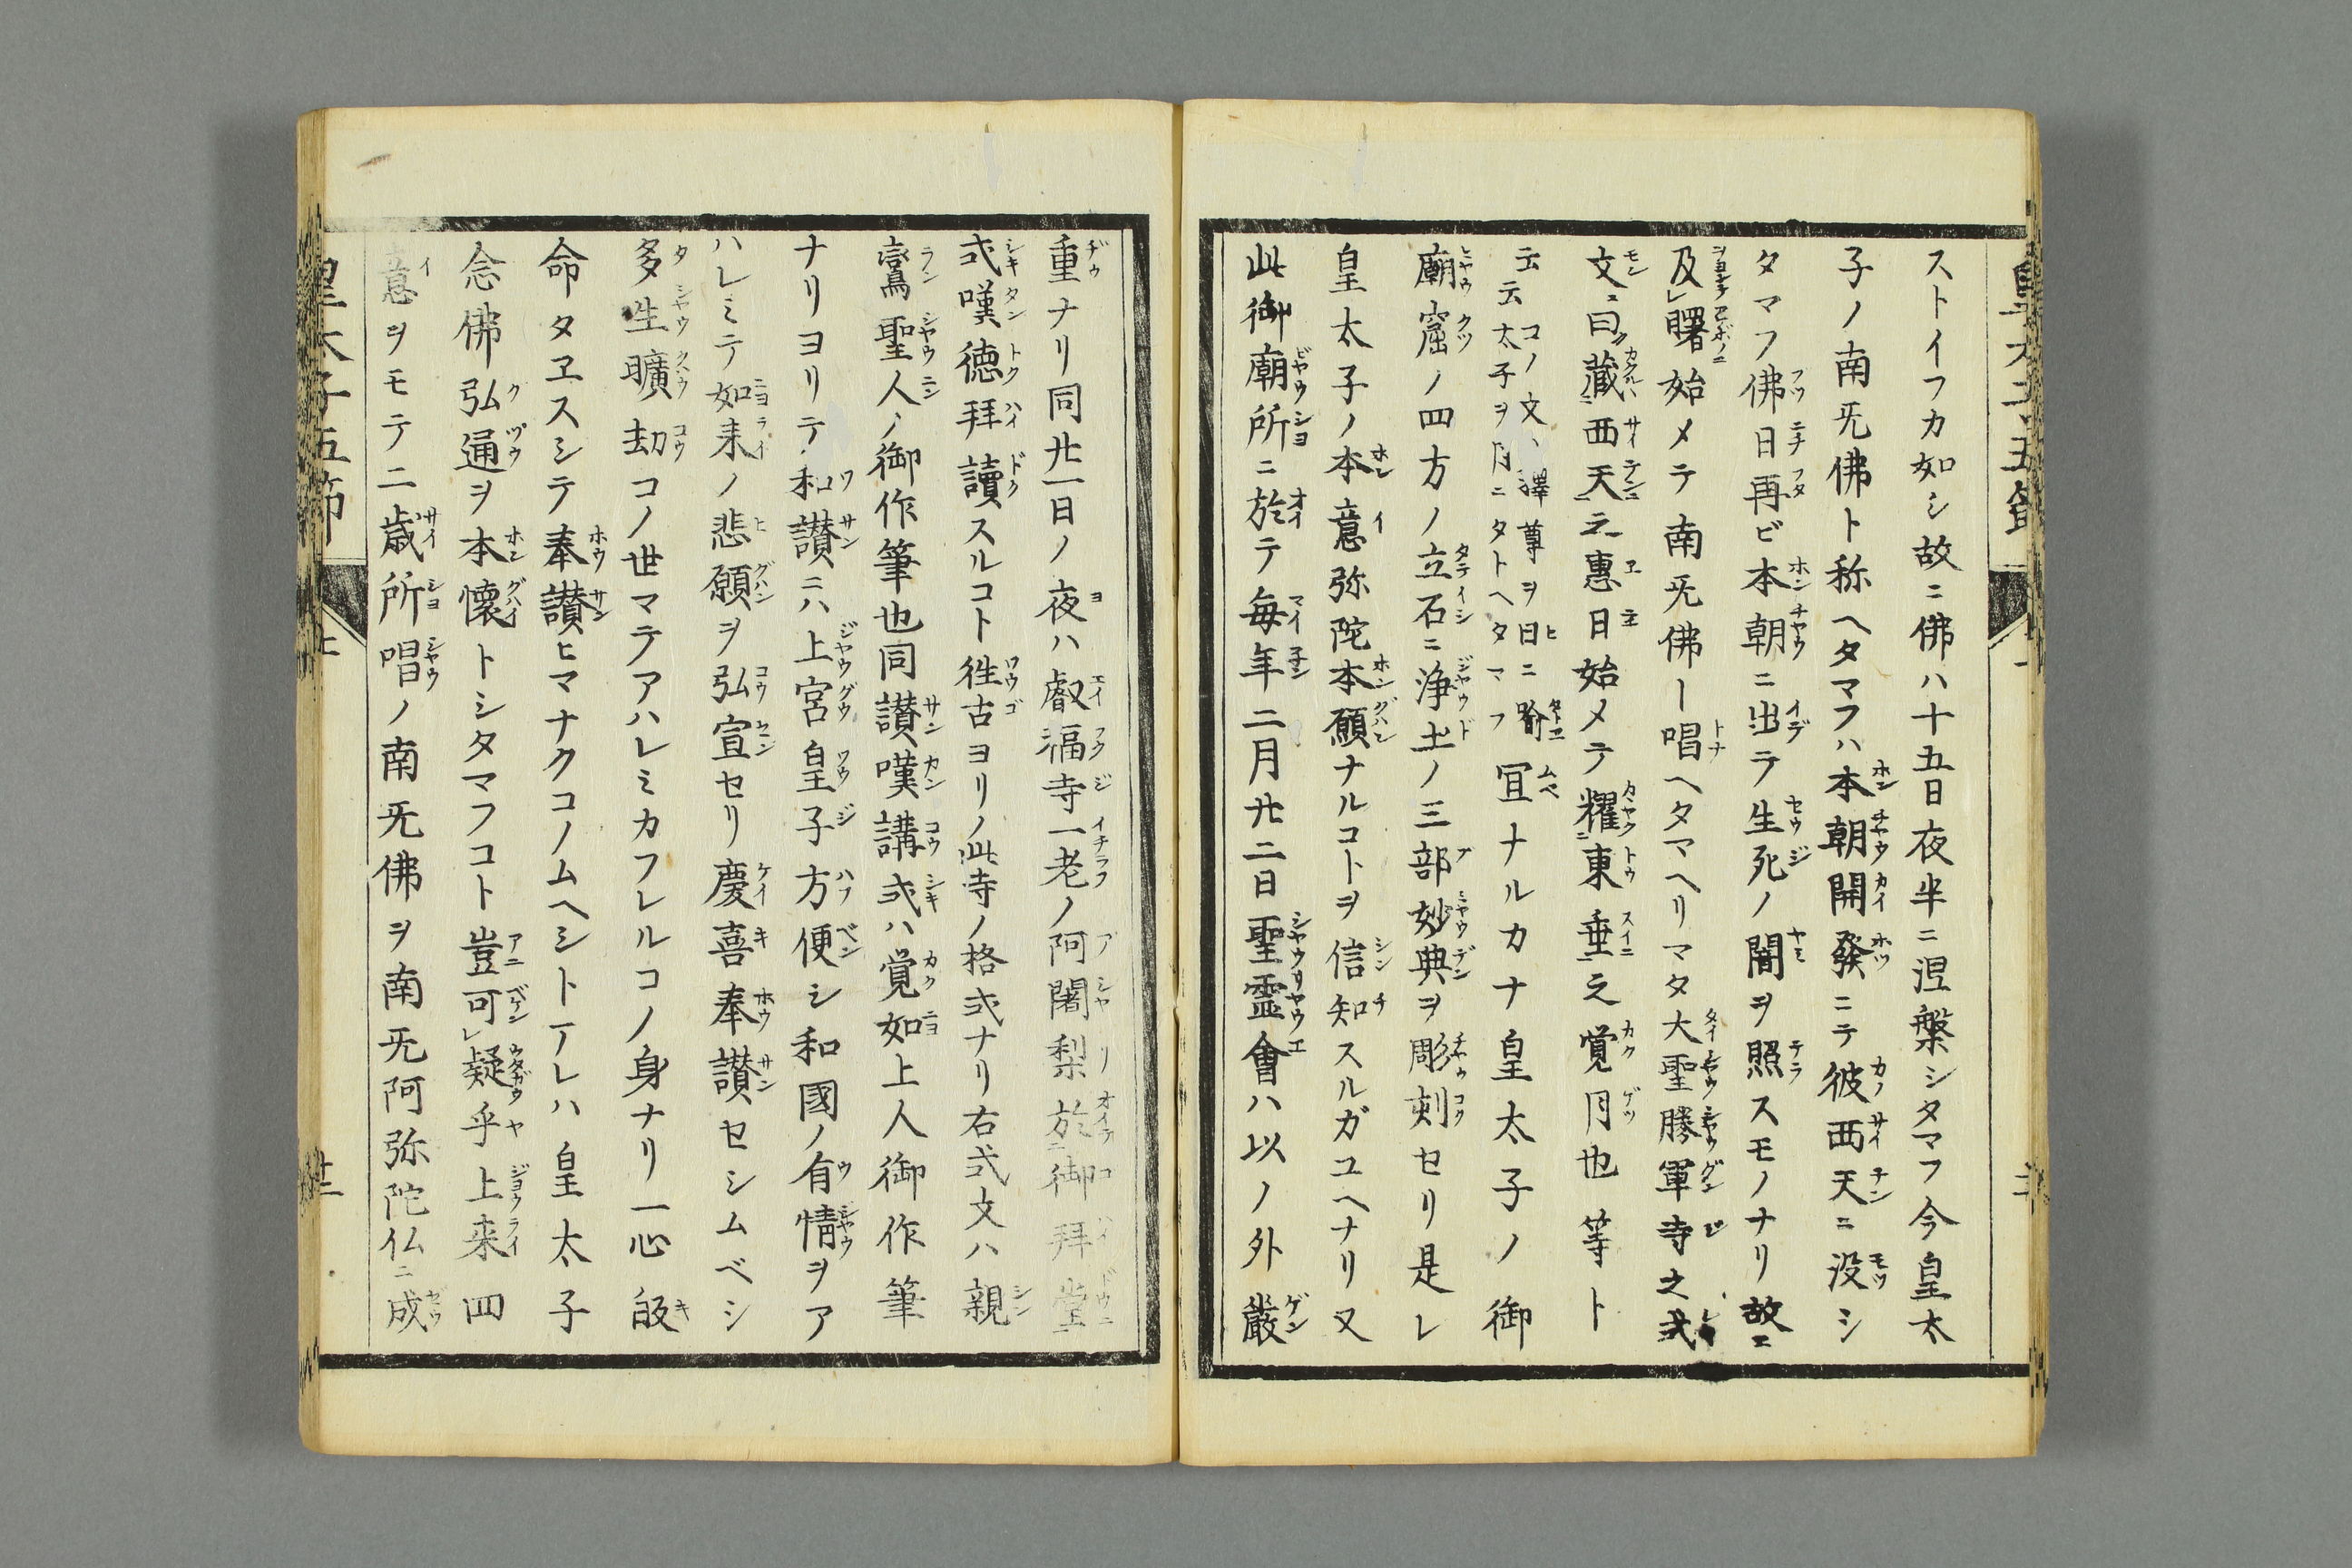 ストイフカ如シ故ニ佛ハ十五日夜半ニ涅槃シタマフ今皇太
子ノ南旡佛ト称ヘタマフハ本朝開發ニテ彼西天ニ没シ
タマフ佛日再ビ本朝ニ出テ生死ノ闇ヲ照スモノナリ故ニ
及レ曙始メテ南旡佛ー唱ヘタマヘリマタ大聖勝軍寺之式
文ニ曰ク藏ニ西天之惠日始メテ耀ニ東垂之覚月也等ト
云云コノ文ハ釋尊ヲ日ニ喻太子ヲ月ニタトヘタマフ宜ナルカナ皇太子ノ御
廟窟ノ四方ノ立石ニ淨土ノ三部妙典ヲ彫刻セリ是レ
皇太子ノ本意弥陀本願ナルコトヲ信知スルガユヘナリ又
此御廟所ニ於テ毎年二月廿二日聖霊會ハ以ノ外嚴
重ナリ同廿一日ノ夜ハ叡福寺一老ノ阿闍梨於御拜堂
式嘆徳拜讀スルコト徃古ヨリノ此寺ノ格式ナリ右式文ハ親
鸞聖人ノ御作筆也同讃嘆講式ハ覚如上人御作筆
ナリヨリテ和讃ニハ上宮皇子方便シ和國ノ有情ヲア
ハレミテ如来ノ悲願ヲ弘宣セリ慶喜奉讃セシムベシ
多生曠劫コノ世マテアハレミカフレルコノ身ナリ一心皈
命タヱスシテ奉讃ヒマナクコノムヘシトアレハ皇太子
念佛弘通ヲ本懷トシタマフコト豈可レ疑乎上来四
意ヲモテ二歳所唱ノ南旡佛ヲ南旡阿弥陀仏ニ成
皇太子五節